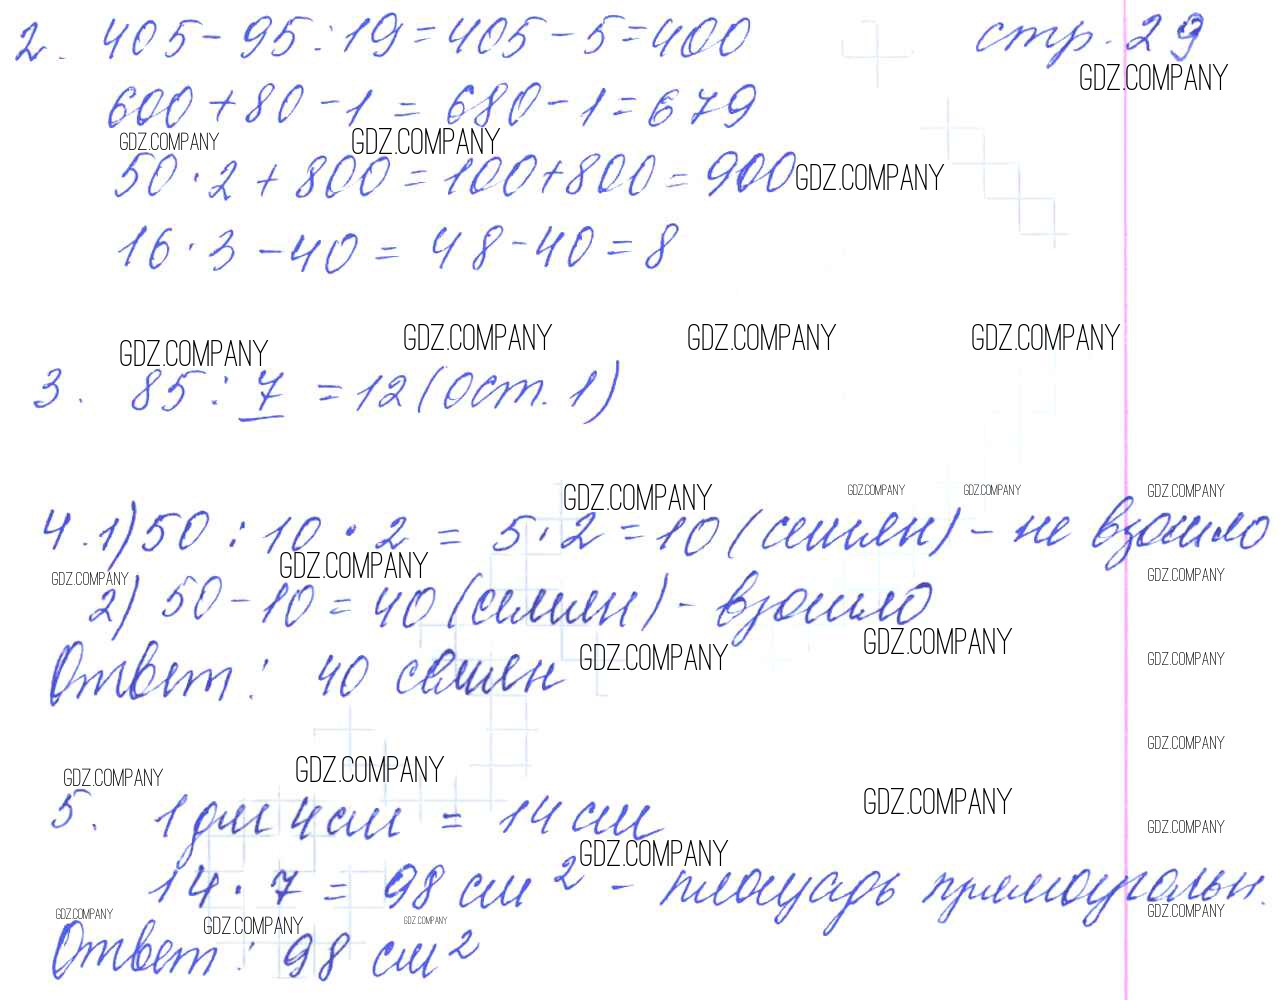 2. 405 - 95 : 19 = 405 - 5 = 400 стр. 29
GDZ.COMPANY
600 + 80 - 1 = 680 - 1 = 679
GDZ.COMPANY GDZ.COMPANY
50 · 2 + 800 = 100 + 800 = 900 GDZ.COMPANY
16 · 3 - 40 = 48 - 40 = 8
GDZ.COMPANY GDZ.COMPANY GDZ.COMPANY GDZ.COMPANY
3. 85 : 7 = 12 (ост. 1)
GDZ.COMPANY GDZ.COMPANY GDZ.COMPANY GDZ.COMPANY
4. 1) 50 : 10 · 2 = 5 · 2 = 10 (семян) - не взошло
GDZ.COMPANY GDZ.COMPANY GDZ.COMPANY
2) 50 - 10 = 40 (семян) - взошло
GDZ.COMPANY GDZ.COMPANY GDZ.COMPANY
Ответ: 40 семян
GDZ.COMPANY
GDZ.COMPANY GDZ.COMPANY
5. 1 дм 4 см = 14 см GDZ.COMPANY
GDZ.COMPANY GDZ.COMPANY
14 · 7 = 98 см² - площадь прямоугольн.
GDZ.COMPANY GDZ.COMPANY GDZ.COMPANY GDZ.COMPANY
Ответ: 98 см²